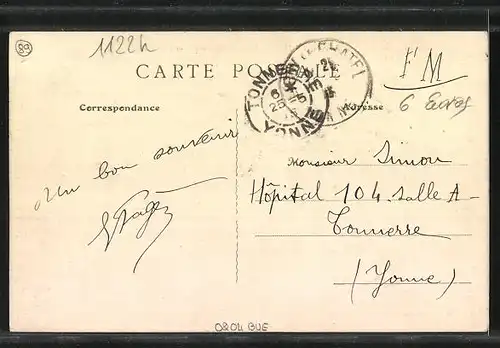 89
1122h
CARTE POSTALE
F M
6 Euros
TONNERRE
6
25 - 5
15
YONNE
Correspondance
Adresse
Un bon souvenir
Monsieur Simon
Hôpital 104. salle A-
Tonnerre
(Yonne)